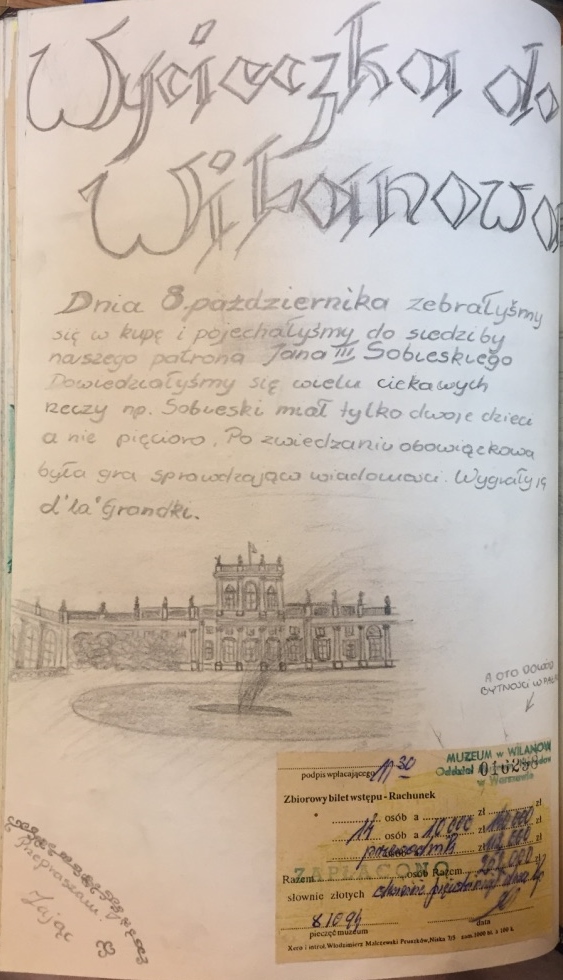 Wycieczka do
Wilanowa
Dnia 8.października zebrałyśmy
się w kupę i pojechałyśmy do siedziby
naszego patrona Jana III Sobieskiego
Dowiedziałyśmy się wielu ciekawych
rzeczy np. Sobieski miał tylko dwoje dzieci
a nie pięcioro. Po zwiedzaniu obowiązkowa
była gra sprawdzająca wiadomości. Wygrały ją
d'la' Grandki.
A OTO DOWÓD
BYTNOŚCI W
MUZEUM w WILANOW
Oddział
016298
w Warszawie
podpis wpłacającego 11 30
Zbiorowy bilet wstępu - Rachunek
zł
14 osób a 10 000 zł 140 000 zł
osób a zł zł
przewodnik 112 000 zł
ZAPŁACONO
Razem osób Razem 252 000 zł
słownie złotych dwieście pięćdziesiąt dwa
8.10.94
pieczęć muzeum
data
Xero i introl. Włodzimierz Malczewski Pruszków, Niska 7/5 zam. 1000 bl. a 100 k.
Przepraszam
Zając